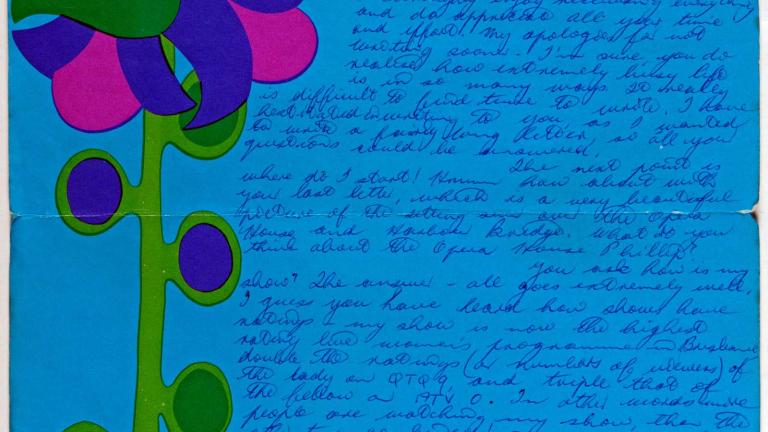 enjoy receiving everything
and do appreciate all your time
and effort. My apologies for not
writing sooner. I'm sure you do
realise how extremely busy life
is in so many ways. It really
is difficult to find time to write. I have
hesitated in writing to you, as I wanted
to write a fairly long letter so all you
questions could be answered.
The next point is
where do I start! Hmmm how about with
you last letter, which is a very beautiful
picture of the setting sun over the Opera
House and Harbour Bridge. What do you
think about the Opera House Phillip?
You ask how is my
show? The answer - all goes extremely well.
I guess you have heard how shows have
ratings - my show is now the highest
rating live women's programme in Brisbane
double the ratings (or numbers of viewers) of
the lady on QTQ9 and triple that of
the fellow on ATV 0. In other words more
people are watching my show, than the